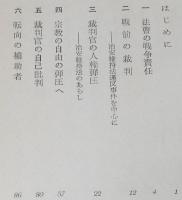 はじめに
1
一 法曹の戦争責任
4
二 戦前の裁判
12
——治安維持法違反事件を中心に
三 裁判官の人権弾圧
22
——治安維持法のあらし
四 宗教の自由の弾圧へ
57
五 裁判官の自己批判
80
六 転向の補助者
86